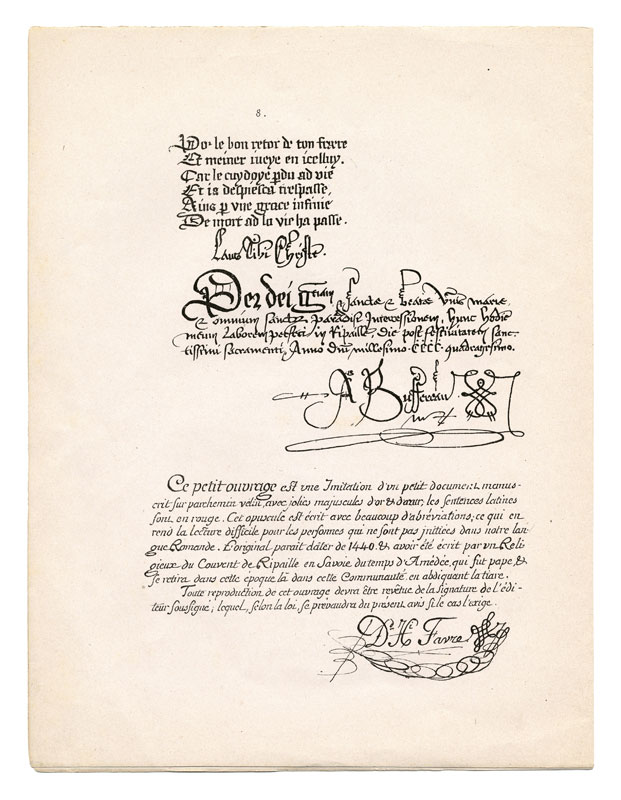 8.
Por le bon retor de ton frarre
Et meiner ioeye en icelluy.
Car le cuydoye pdu ad vie
Et ia despiesca trespasse,
Ains p vne grace infinie
De mort ad la vie ha passe.
Laus Tibi Christe.
Per dei gratiam, & sancte & beate Vgis marie,
& omnium sanctor paradisi Intercessionem, hunc hodie
meum Laborem perfeci in Ripaille, die post festivitatem sanc-
tissimi sacramenti, Anno dni millesimo CCCC quadragesimo.
A Buffereau
Ce petit ouvrage est une Imitation d'un petit document manus-
crit sur parchemin velin, avec jolies majuscules d'or & d'azur; les sentences latines
sont en rouge. Cet opuscule est écrit avec beaucoup d'abréviations; ce qui en
rend la lecture difficile pour les personnes qui ne sont pas initiées dans notre lan-
gue Romande. L'original parait dâter de 1440. & avoir été écrit par un Reli-
gieux du Couvent de Ripaille en Savoie, du temps d'Amédée, qui fut pape, &
se retira dans cette époque là dans cette Communauté, en abdiquant la tiare.
Toute reproduction de cet ouvrage devra être revêtue de la signature de l'édi-
teur soussigné; lequel, selon la loi, se prévaudra du présent avis si le cas l'exige.
Dr. Hi. Favre